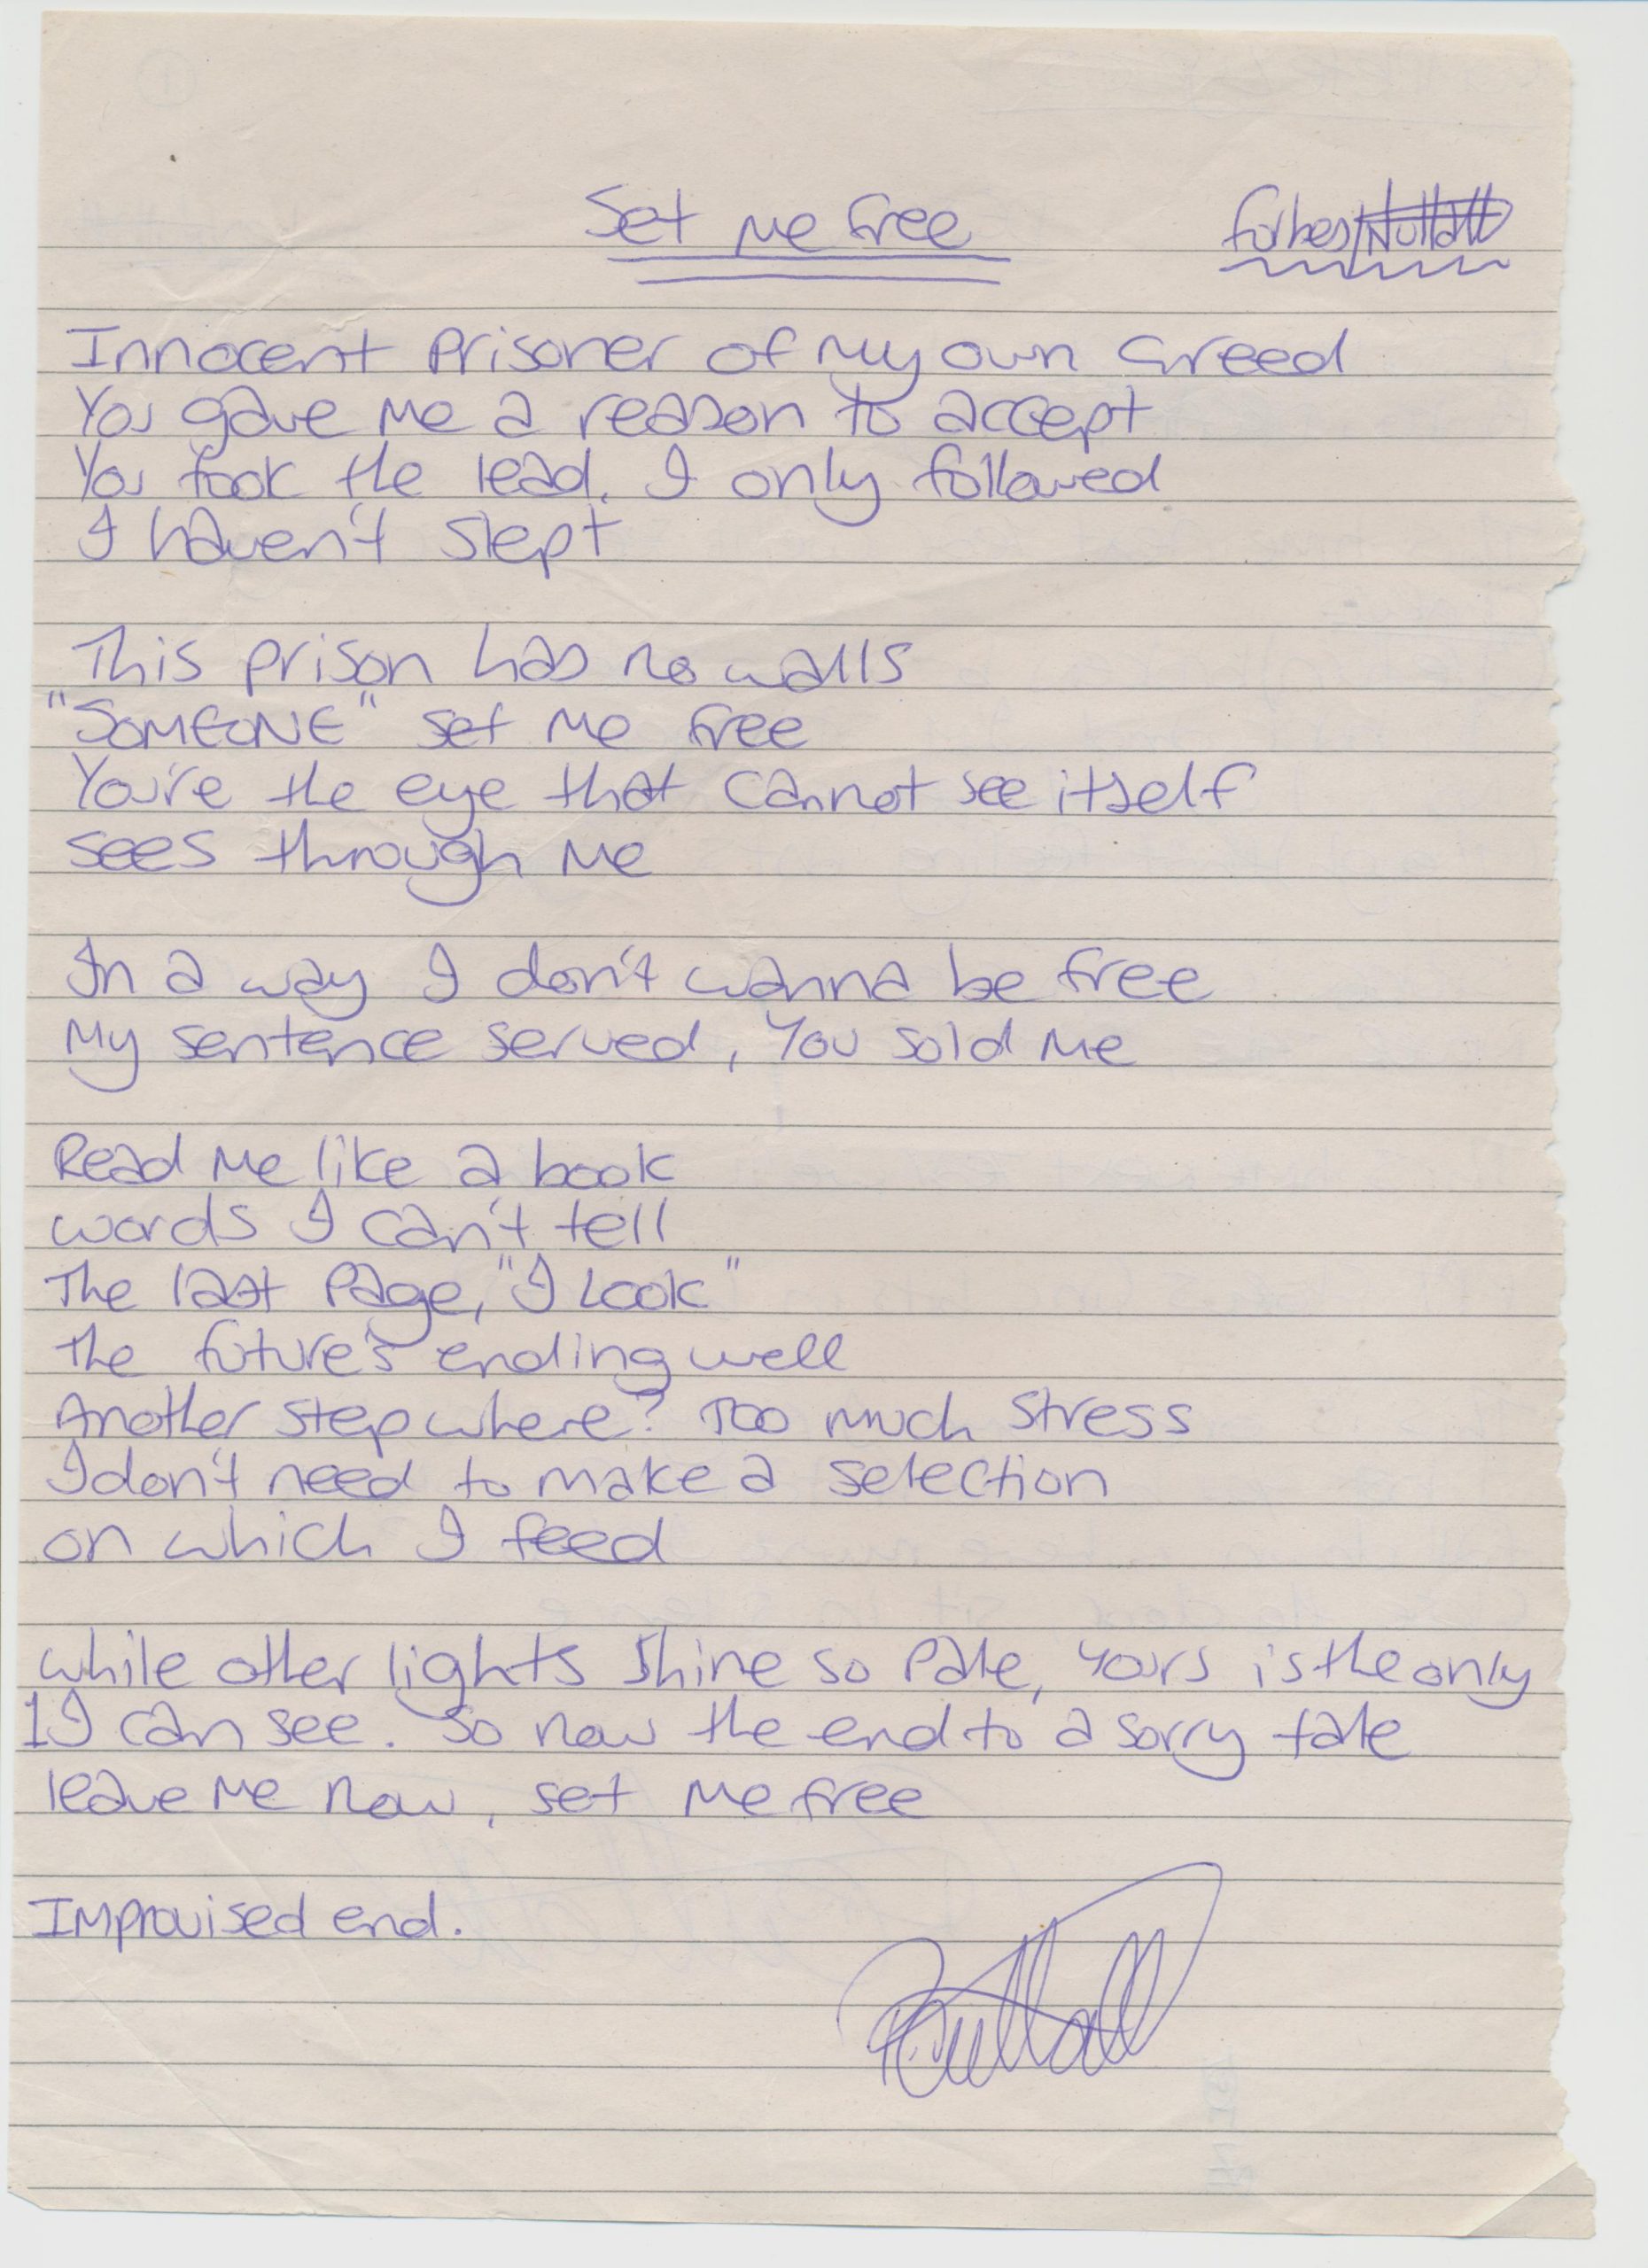 Set Me Free
Forbes/Nuttall
Innocent Prisoner of My own Greed
You gave Me a reason to accept
You took the lead. I only followed
I haven't slept
This prison has no walls
"SOMEONE" set Me free
You're the eye that cannot see itself
sees through Me
In a way I don't wanna be free
My sentence served, You sold Me
Read Me like a book
words I can't tell
The last Page, "I Look"
the future's ending well
Another step where? Too much stress
I don't need to make a selection
on which I feed
while other lights shine so Pale, yours is the only
1 I can see. So now the end to a sorry tale
leave Me now, set Me free
Improvised end.